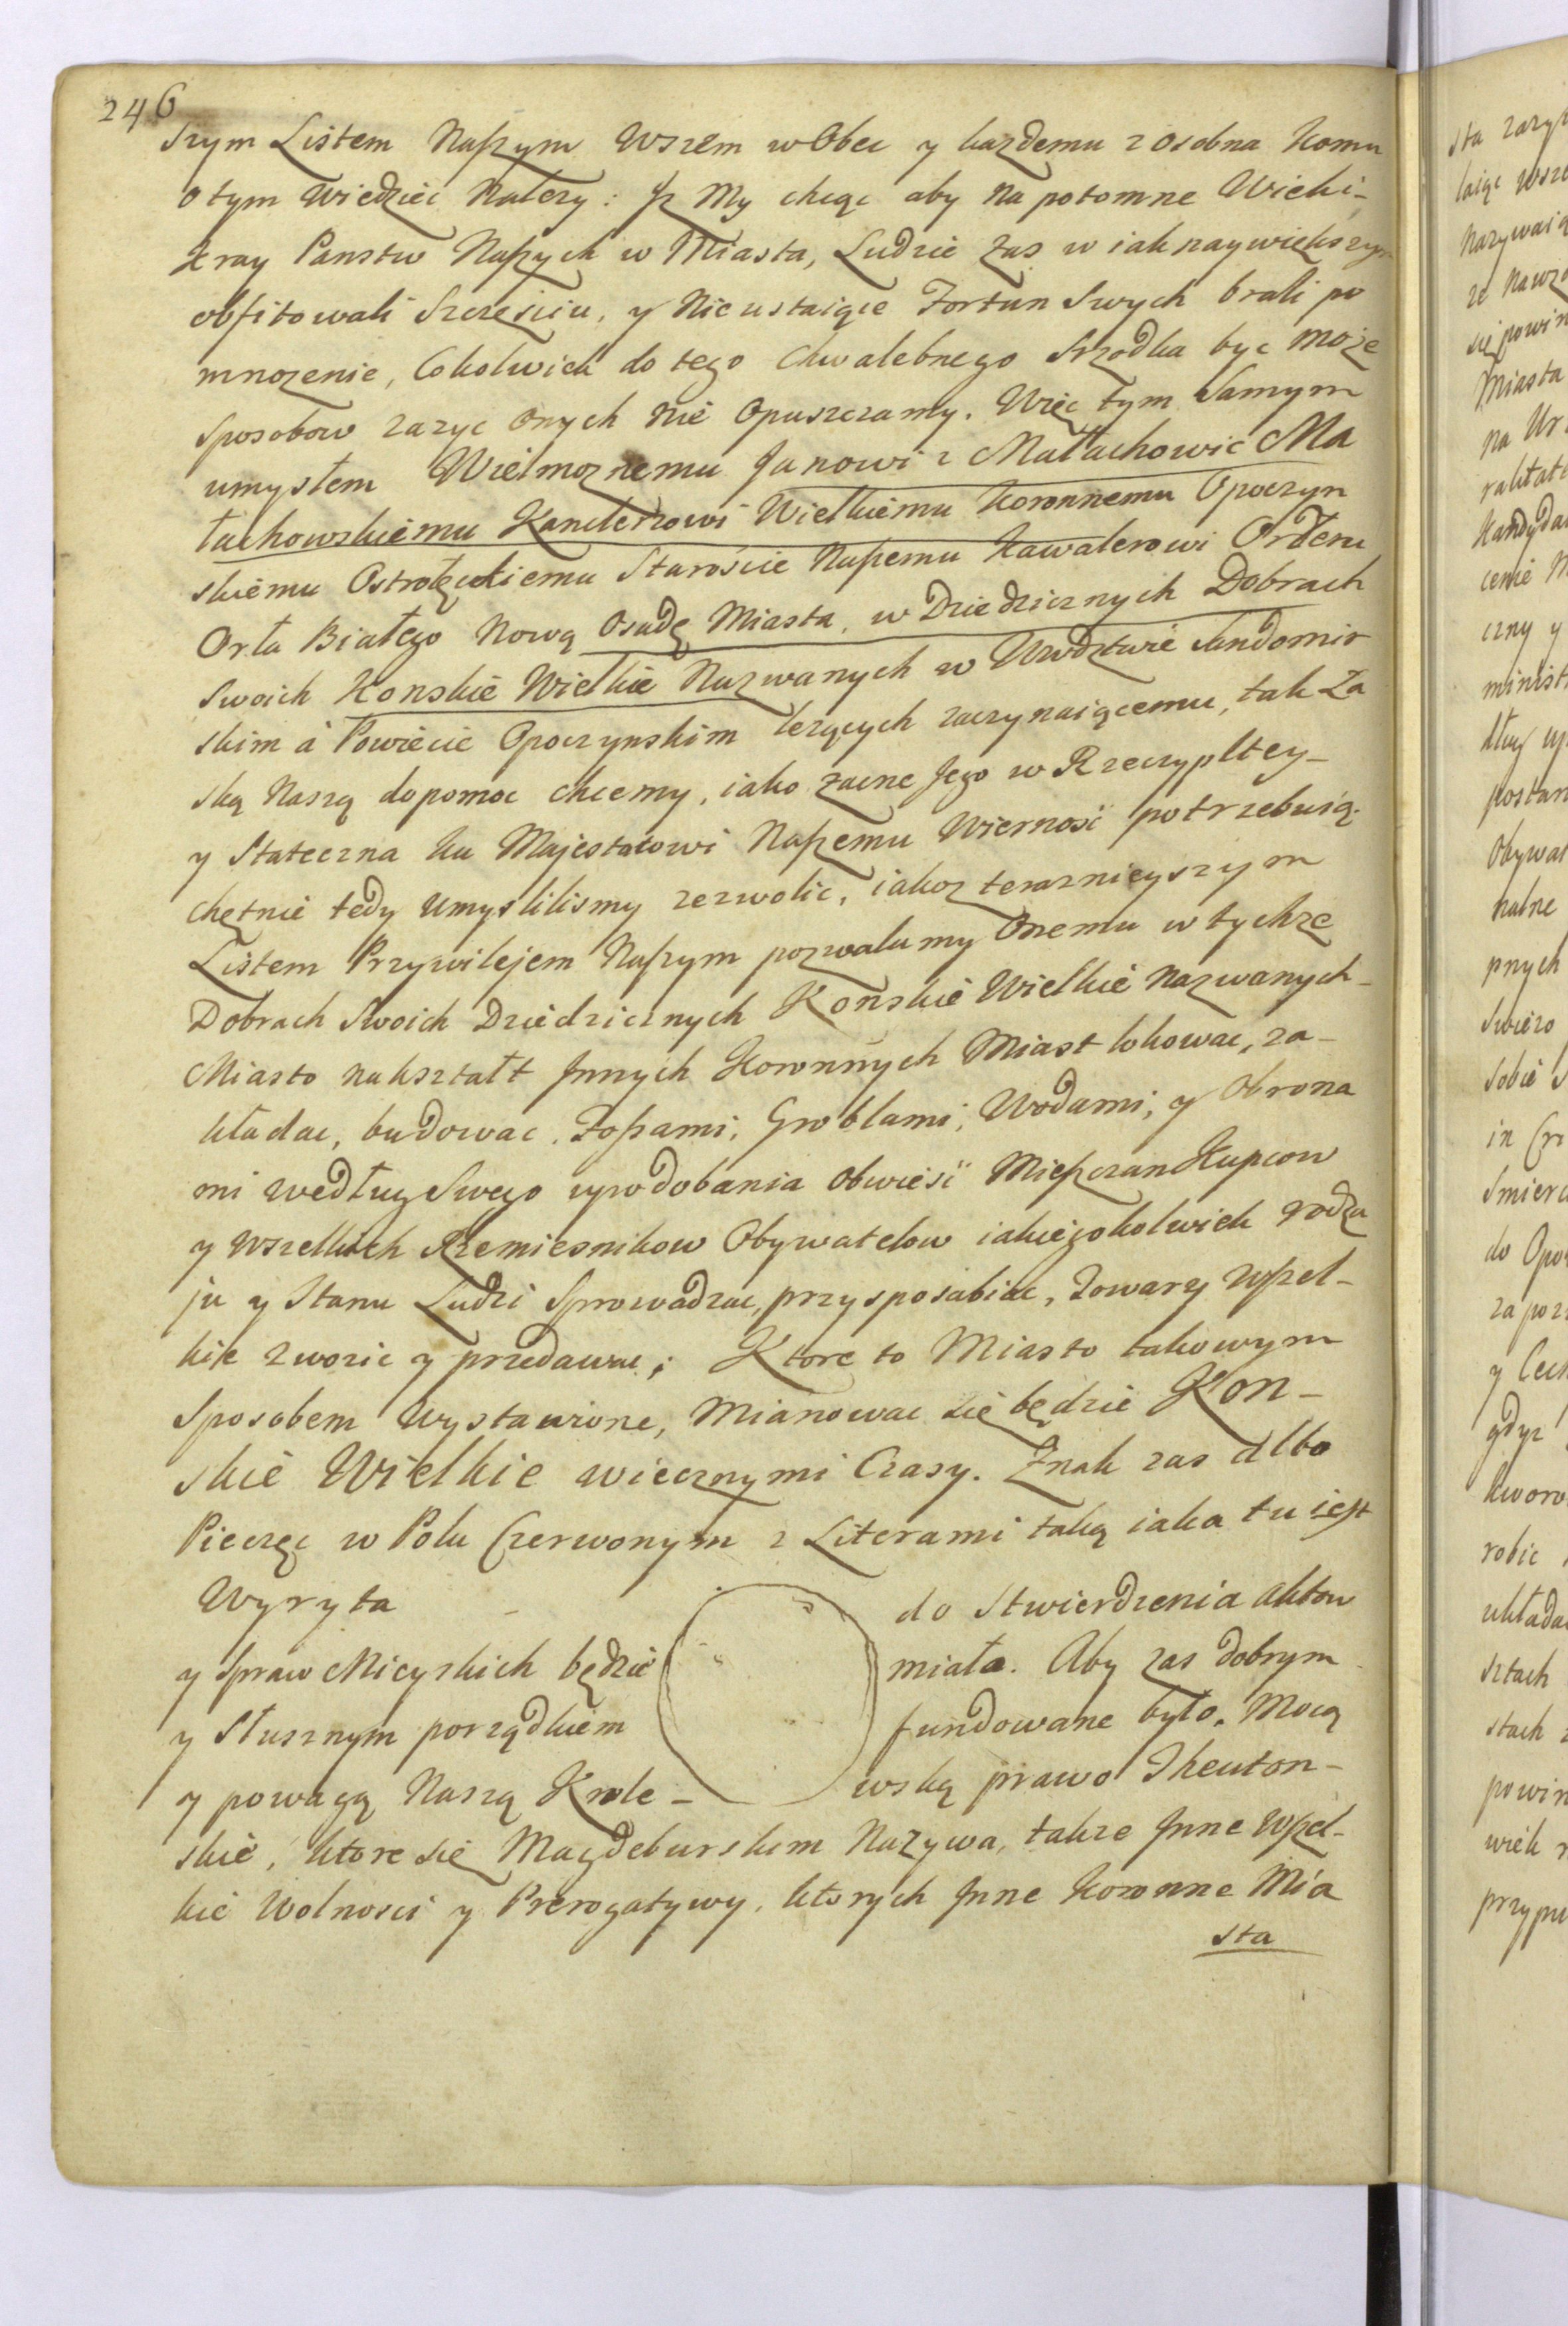 246
szym Listem Naszym Wszem w Obec y kazdemu z Osobna Komu
o tym Wiedziec Nalezy: Jz My chcąc aby na potomne Wieki
Kray Panstw Naszych w Miasta, Ludzie zas w iak naywiększym
obfitowali Szczęsciu, y Nieustaiące Fortun Swych brali po
mnozenie, Cokolwiek do tego Chwalebnego Srzodka byc moze
Sposobow zazyc Onych nie Opuszczamy. Więc tym Samym
umysłem Wielmoznemu Janowi z Małachowic Ma
łachowskiemu Kanclerzowi Wielkiemu Koronnemu Opoczyn
skiemu Ostrołęckiemu Staroscie Naszemu Kawalerowi Orderu
Orła Białego Nową Osadę Miasta, w Dziedzicznych Dobrach
Swoich Konskie Wielkie Nazwanych w Wwdztwie Sandomir
skim á Powiecie Opoczynskim lezących zaczynaiącemu, tak Ła
ską Naszą dopomoc chcemy, iako zacne Jego w Rzeczypltey
y Stateczna ku Majestatowi Naszemu Wiernosć potrzebuią.
chętnie tedy umyslilismy zezwolic, iakoz teraznieyszym
Listem Przywilejem Naszym pozwalamy Onemu w tychze
Dobrach Swoich Dziedzicznych Konskie Wielkie Nazwanych
Miasto naksztalt Jnnych Koronnych Miast lokowac, za-
kładac, budowac, Fossami, Groblami, Wodami, y Obrona
mi według Swego upodobania Obwiesć Mieszczan Kupcow
y Wszelkich Rzemiesnikow Obywatelow iakiegokolwiek rodza
ju y Stanu Ludzi Sprowadzac, przysposabiac, Towary Wszel-
kie zwozic y przedawac; Ktore to Miasto takowym
Sposobem Wystawione, Mianowac się będzie Kon-
skie Wielkie wiecznymi Czasy. Znak zas albo
Pieczęc w Polu Czerwonym z Literami taką iaka tu iest
Wyryta do Stwierdzenia aktow
y Spraw Mieyskich będzie miała. Aby zas dobrym
y Słusznym porządkiem fundowane było, Mocą
y powagą Naszą Krole- wską prawo Theuton-
skie, ktore się Magdeburskim Nazywa, takze Jnne Wszel-
kie Wolnosci y Prerogatywy, ktorych Jnne Koronne Mia
sta